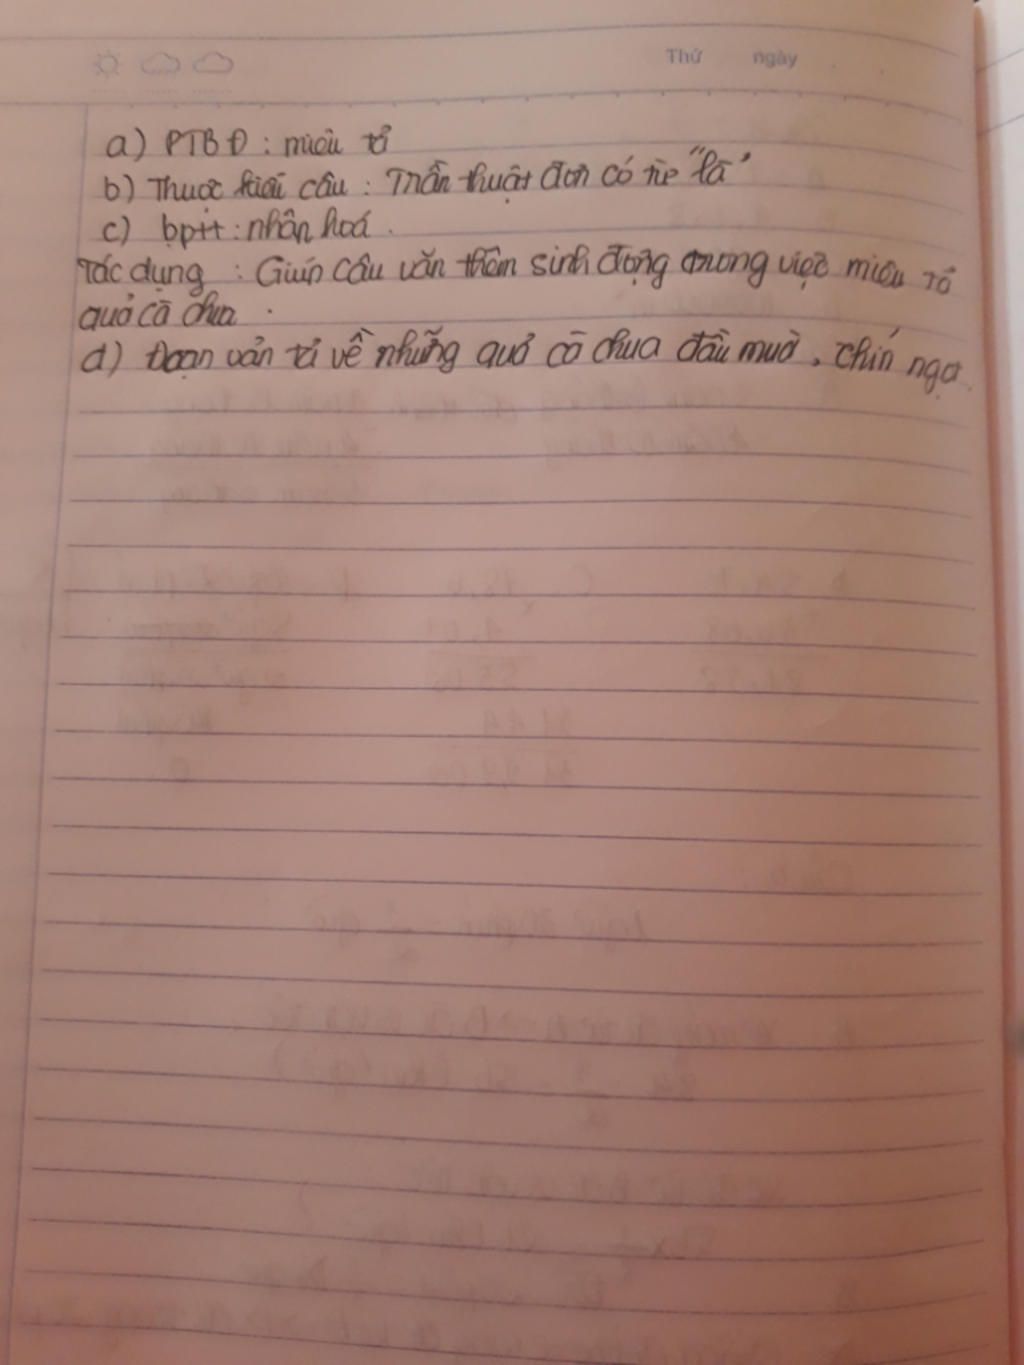 Thứ ngày
a) PTBĐ : miêu tả
b) Thuộc kiểu câu : Trần thuật đơn có từ "là"
c) bptt : nhân hoá .
Tác dụng : Giúp câu văn thêm sinh động trong việc miêu tả
quả cà chua .
d) Đoạn văn tả về những quả cà chua đầu mùa , chín ngọ